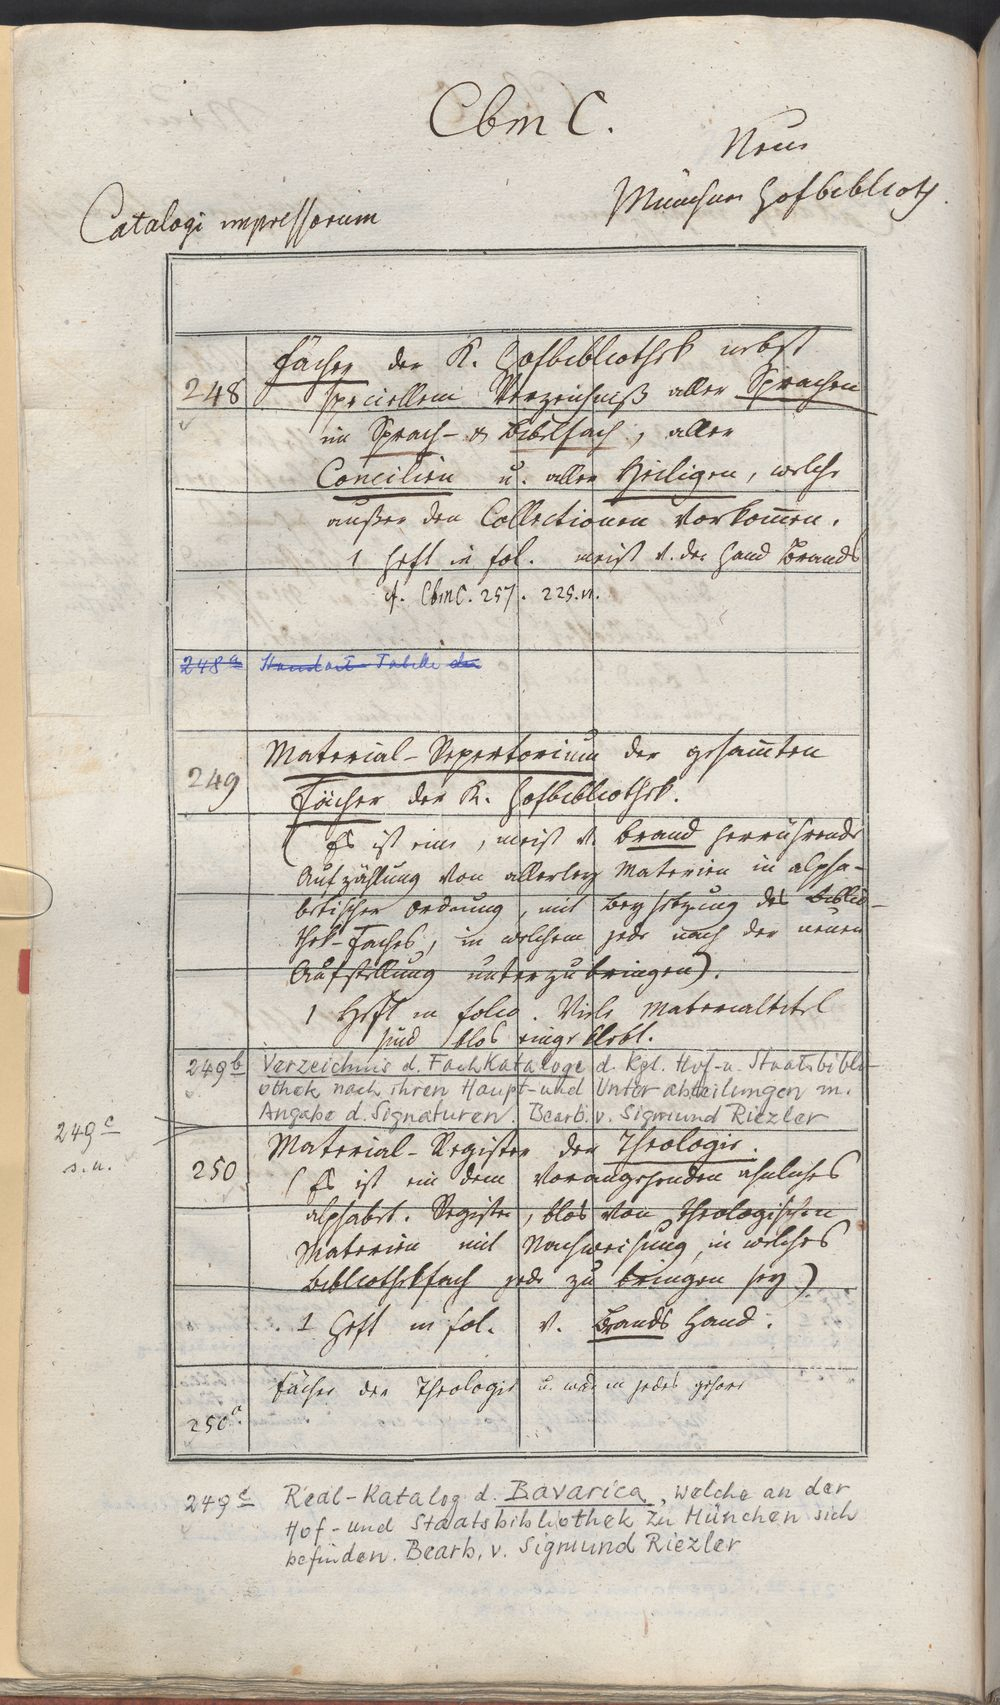 Cbm C.
Neue
Münchner Hofbiblioth.
Catalogi impressorum
248
Fächer der K. Hofbibliothek nebst
speciellem Verzeichniß aller Sprachen
im Sprach- & Bibelfach, aller
Concilien u. aller Heiligen, welche
außer den Collectionen vorkom̅en.
1 Heft in fol. meist v. der Hand Brands
cf. CbmC. 257. 225.
248a Standort-Tabelle der
249
Material-Repertorium der gesam̅ten
Fächer der K. Hofbibliothek.
(Es ist eine, meist v. Brand herrührende
Aufzählung von allerley Materien in alpha-
betischer Ordnung, mit Beysetzung des Biblio-
thek-Faches, in welchem jede nach der neuen
Aufstellung unterzubringen).
1 Heft in folio. Viele Materialtitel
sind blos eingeklebt.
249b Verzeichnis d. Fachkataloge d. Kgl. Hof- u. Staatsbibli-
othek nach ihren Haupt- und Unterabteilungen m.
Angabe d. Signaturen. Bearb. v. Sigmund Riezler
249c
s. u.
250
Material-Register der Theologie.
(Es ist ein dem vorangehenden ähnliches
alphabet. Register, blos von theologischen
Materien mit Nachweisung, in welches
Bibliothekfach jede zu bringen sey)
1 Heft in fol. v. Brands Hand.
250a.
Fächer der Theologie u. was in jedes gehöre
249c Real-Katalog d. Bavarica, welche an der
Hof- und Staatsbibliothek zu München sich
befinden. Bearb. v. Sigmund Riezler